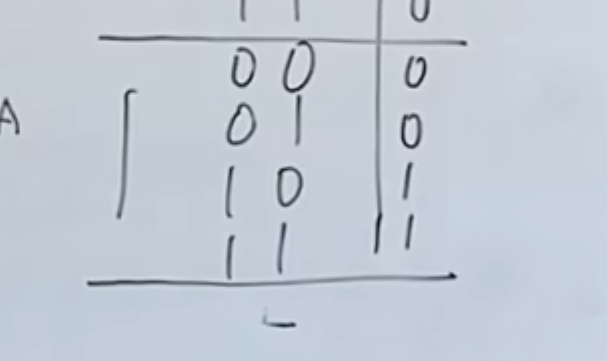 1 1 | 0
0 0 | 0
A 0 1 | 0
1 0 | 1
1 1 | 1